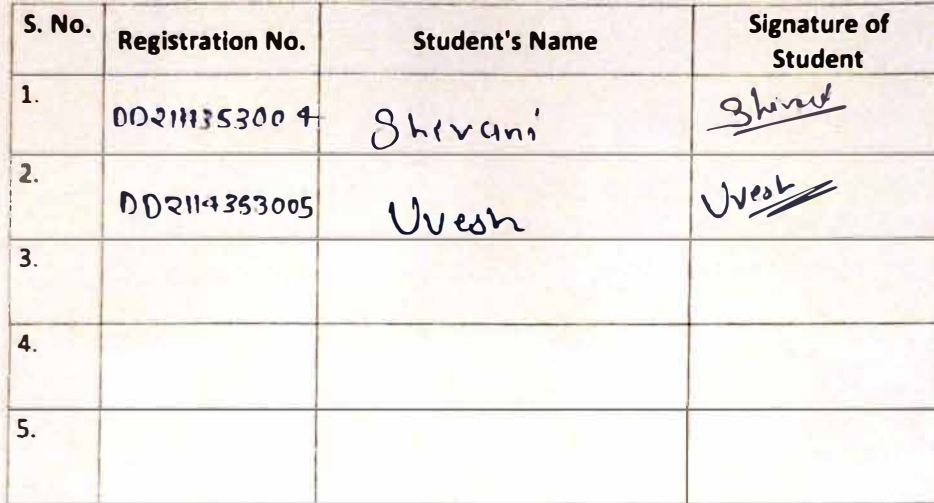 S. No. Registration No. Student's Name Signature of Student
1. Shivani
2. DD2114353005 Uvesh Uvesh
3.
4.
5.